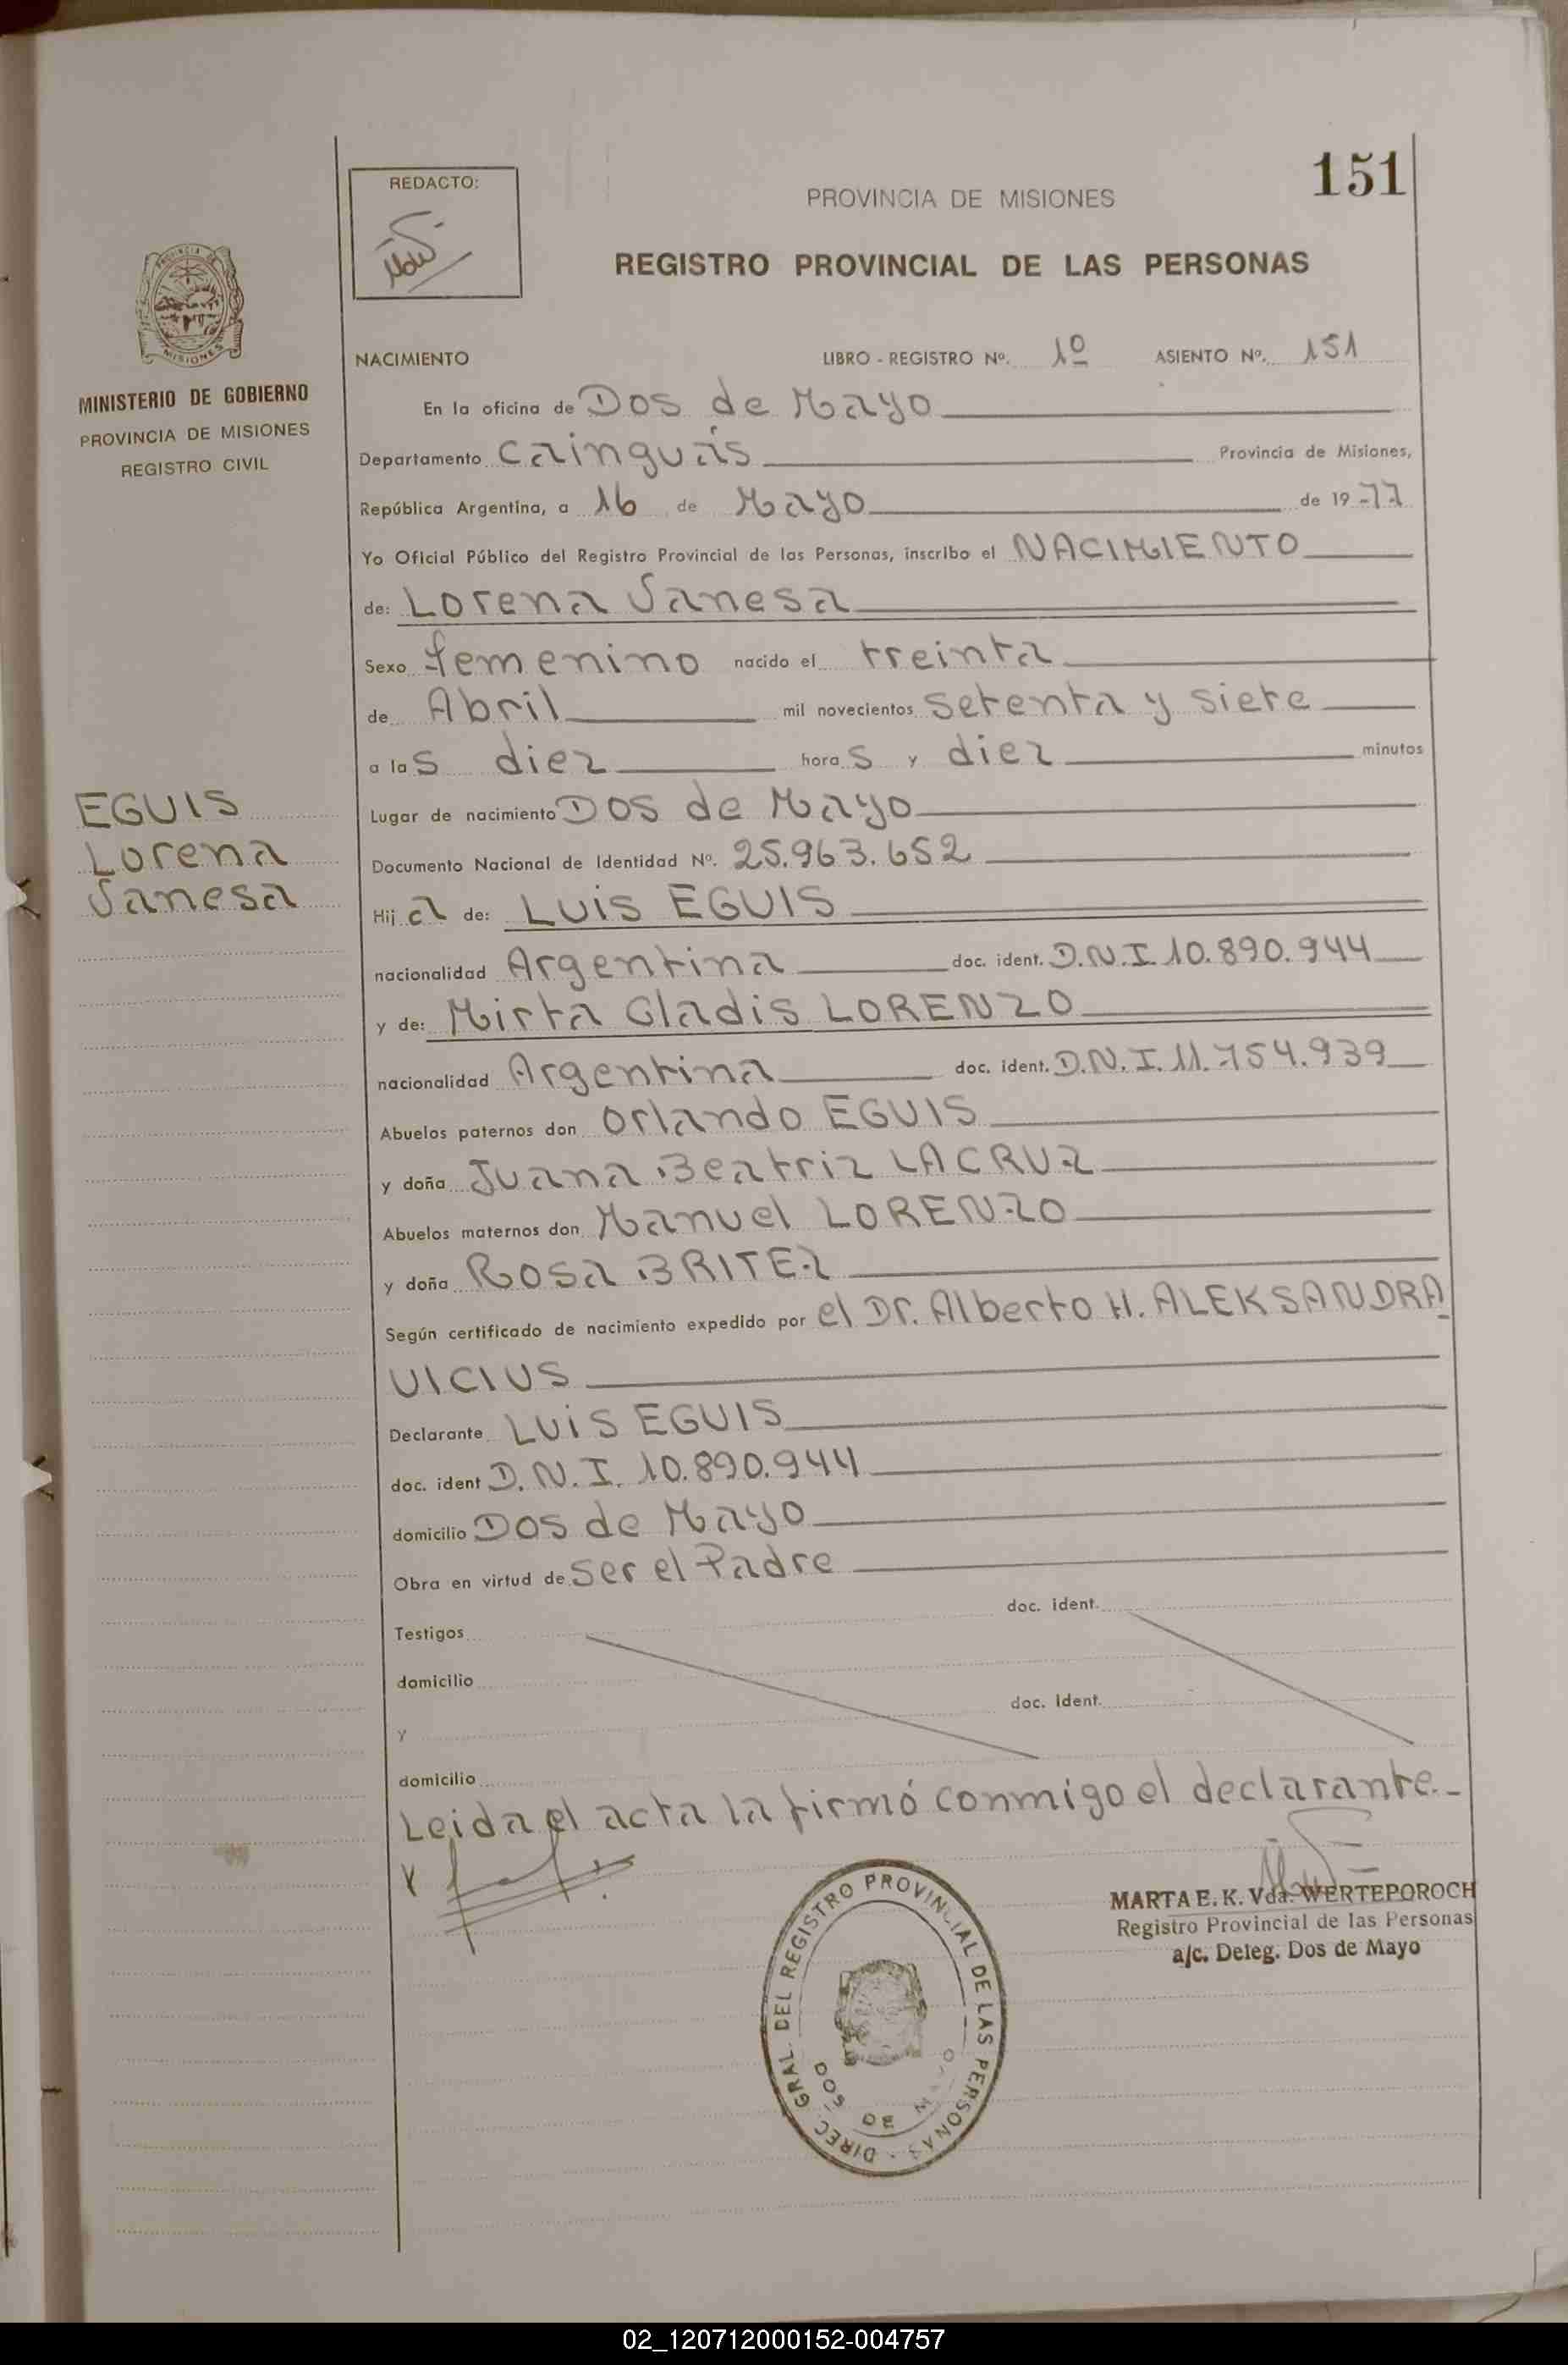 151
REDACTO:
PROVINCIA DE MISIONES
REGISTRO PROVINCIAL DE LAS PERSONAS
PROVINCIA DE
MISIONES
MINISTERIO DE GOBIERNO
PROVINCIA DE MISIONES
REGISTRO CIVIL
NACIMIENTO LIBRO - REGISTRO Nº. 1º ASIENTO Nº. 151
En la oficina de Dos de Mayo
Departamento Cainguás Provincia de Misiones,
República Argentina, a 16 de Mayo de 19-77
Yo Oficial Público del Registro Provincial de las Personas, inscribo el NACIMIENTO
de: Lorena Vanesa
Sexo femenino nacido el treinta
de Abril mil novecientos setenta y siete
a las diez horas y diez minutos
EGUIS
Lorena
Vanesa
Lugar de nacimiento Dos de Mayo
Documento Nacional de Identidad Nº. 25.963.652
Hija de: Luis EGUIS
nacionalidad Argentina doc. ident. D.N.I. 10.890.944
y de: Mirta Gladis LORENZO
nacionalidad Argentina doc. ident. D.N.I. 11.754.939
Abuelos paternos don Orlando EGUIS
y doña Juana Beatriz LACRUZ
Abuelos maternos don Manuel LORENZO
y doña Rosa BRITEZ
Según certificado de nacimiento expedido por el Dr. Alberto H. ALEKSANDRA
VICIUS
Declarante Luis EGUIS
doc. ident D.N.I. 10.890.944
domicilio Dos de Mayo
Obra en virtud de ser el Padre
doc. ident.
Testigos
domicilio
doc. ident.
y
domicilio
Leida el acta la firmó conmigo el declarante.-
MARTA E. K. Vda. WERTEPOROCH
Registro Provincial de las Personas
a/c. Deleg. Dos de Mayo
DIREC. GRAL. DEL REGISTRO PROVINCIAL DE LAS PERSONAS
02_120712000152-004757